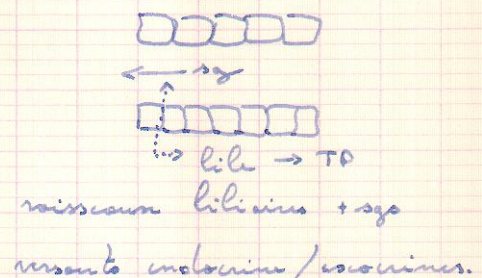 sg
bile → TD
vaisseaux biliaires + sgs
versants endocrine / exocrines.